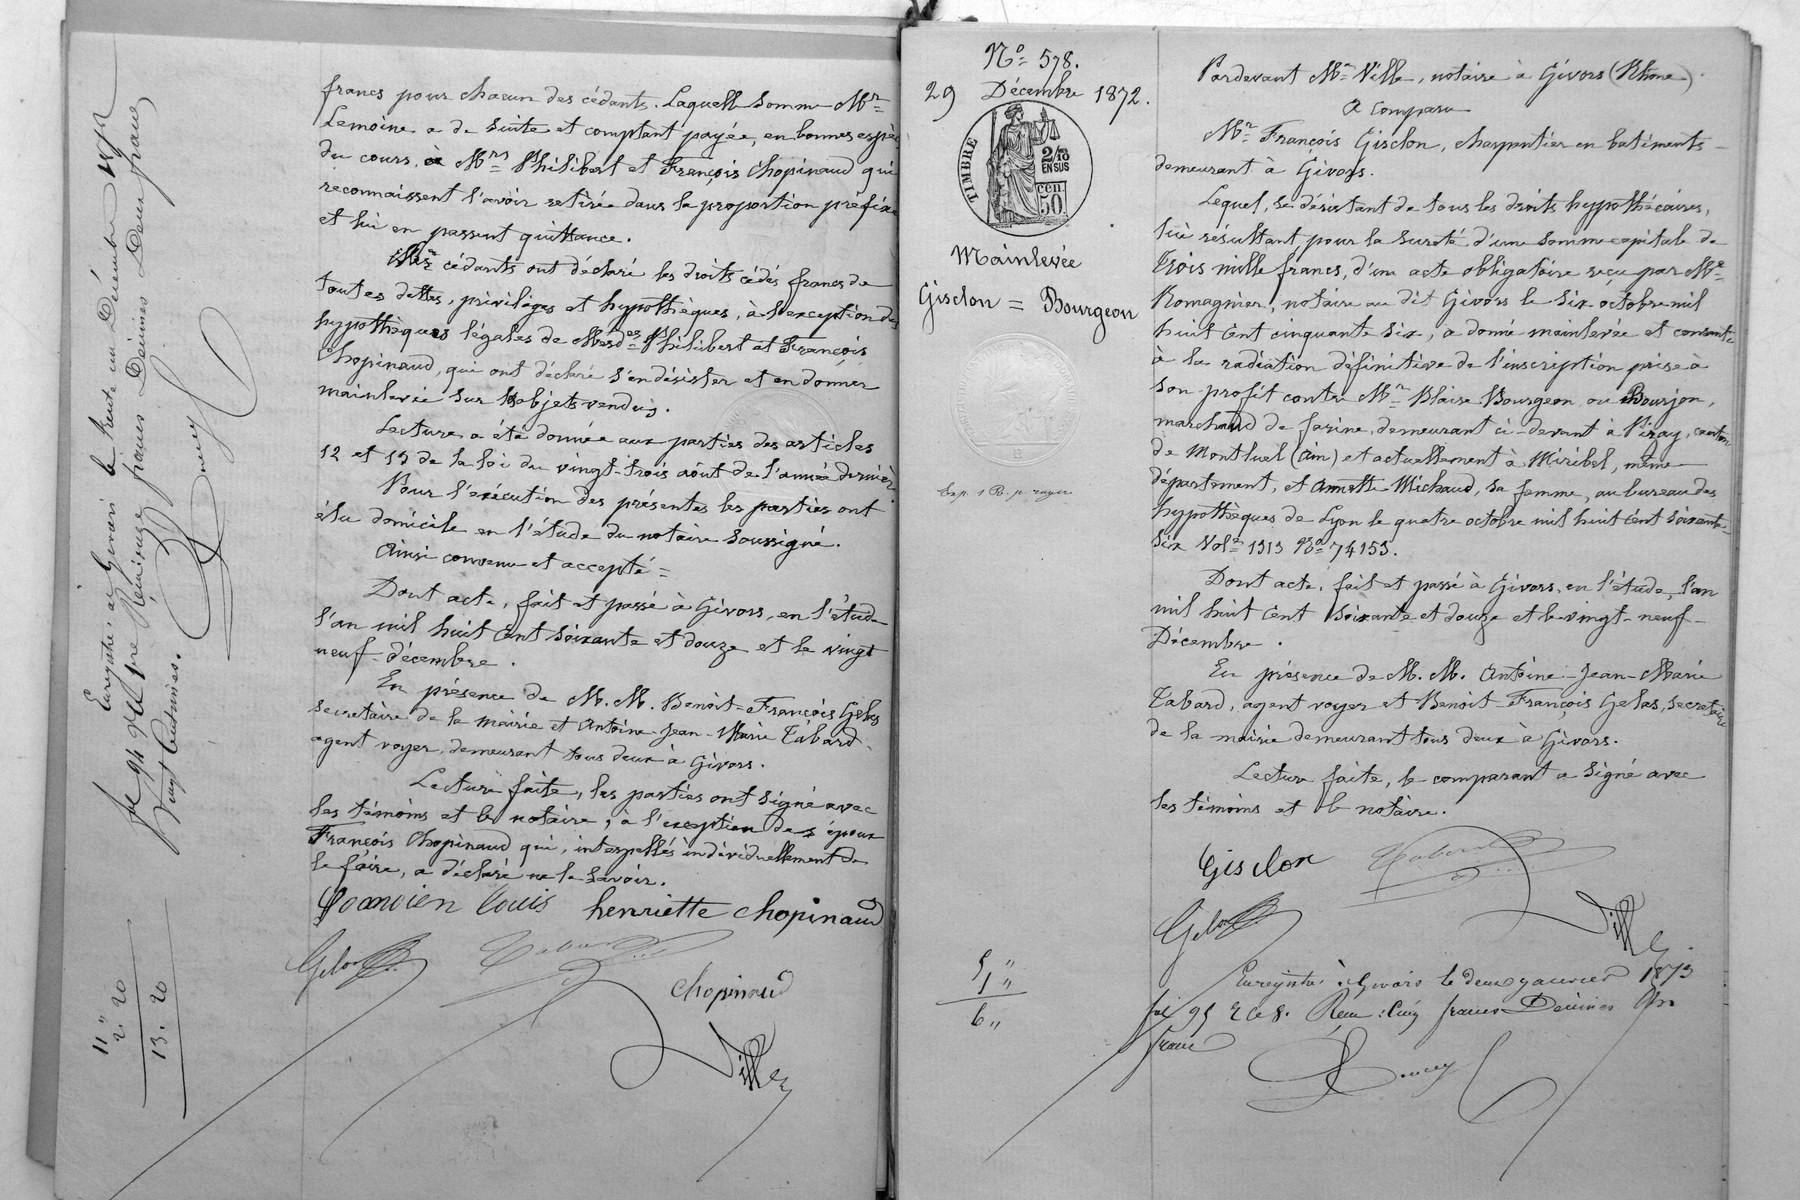 francs pour chacun des cédants. Laquelle somme Mr
Lemoine a de suite et comptant payée, en bonnes espèc
du cours, à Mrs Philibert et François Chopinaud qui
reconnaissent l'avoir retirée dans la proportion préfixe
et lui en passent quittance.
cédants ont déclaré les droits cédés francs de
toutes dettes, privilèges et hypothèques, à l'exception de
hypothèques légales de Mesdes Philibert et François
Chopinaud, qui ont déclaré s'en désister et en donner
mainlevée sur les objets vendus.
Lecture a été donnée aux parties des articles
12 et 13 de la loi du vingt-trois août de l'année dernière.
Pour l'exécution des présentes les parties ont
élu domicile en l'étude du notaire soussigné.
Ainsi convenu et accepté =
Dont acte, fait et passé à Givors, en l'étude
l'an mil huit cent soixante et douze et le vingt
neuf décembre.
En présence de M. M. Benoit=François Gelas
secretaire de la mairie et Antoine-Jean-Marie Tabard
agent voyer, demeurant tous deux à Givors.
Lecture faite, les parties ont signé avec
les témoins et le notaire, à l'exception des époux
François Chopinaud qui, interpellés individuellement de
le faire, a déclaré ne le savoir.
Louis henriette chopinaud
Gelas Tabard
chopinaud
Ville
Enregistré à Givors le trente un Décembre
fo 94
francs Décimes Deux francs
Vingt Centimes.
11 "
2. 20
13. 20
No 578.
29 Décembre 1872.
TIMBRE
2/10
EN SUS
CEN
50
Mainlevée
Gisclon = Bourgeon
5 "
1 "
6 "
Pardevant Me Ville, notaire à Givors (Rhône).
A Comparu
Mr François Gisclon, charpentier en batiments
demeurant à Givors.
Lequel, se désistant de tous les droits hypothécaires,
lui résultant, pour la sureté d'une somme capitale de
trois mille francs, d'un acte obligatoire reçu par Me
Romagnier, notaire au dit Givors le six octobre mil
huit cent cinquante six, a donné mainlevée et consenti
à la radiation définitive de l'inscription prise à
son profit contre Mr Blaise Bourgeon ou Bourjon,
marchand de farine, demeurant ci-devant à Pizay, canton
de Montluel (Ain) et actuellement à Miribel, même
département, et Annette Michaud, sa femme, au bureau des
hypothèques de Lyon le quatre octobre mil huit cent soixante-
six Vole 1313 No 74153.
Dont acte, fait et passé à Givors, en l'étude, l'an
mil huit cent soixante et douze et le vingt-neuf
Décembre.
En présence de M. M. Antoine-Jean-Marie
Tabard, agent voyer et Benoit François Gelas, secretaire
de la mairie demeurant tous deux à Givors.
Lecture faite, le comparant a signé avec
les témoins et le notaire.
Gisclon Tabard
Gelas Ville
Enregistré à Givors le deux janvier 1873
fo 95 Ce 8. Reçu : Cinq francs Décimes Un
franc